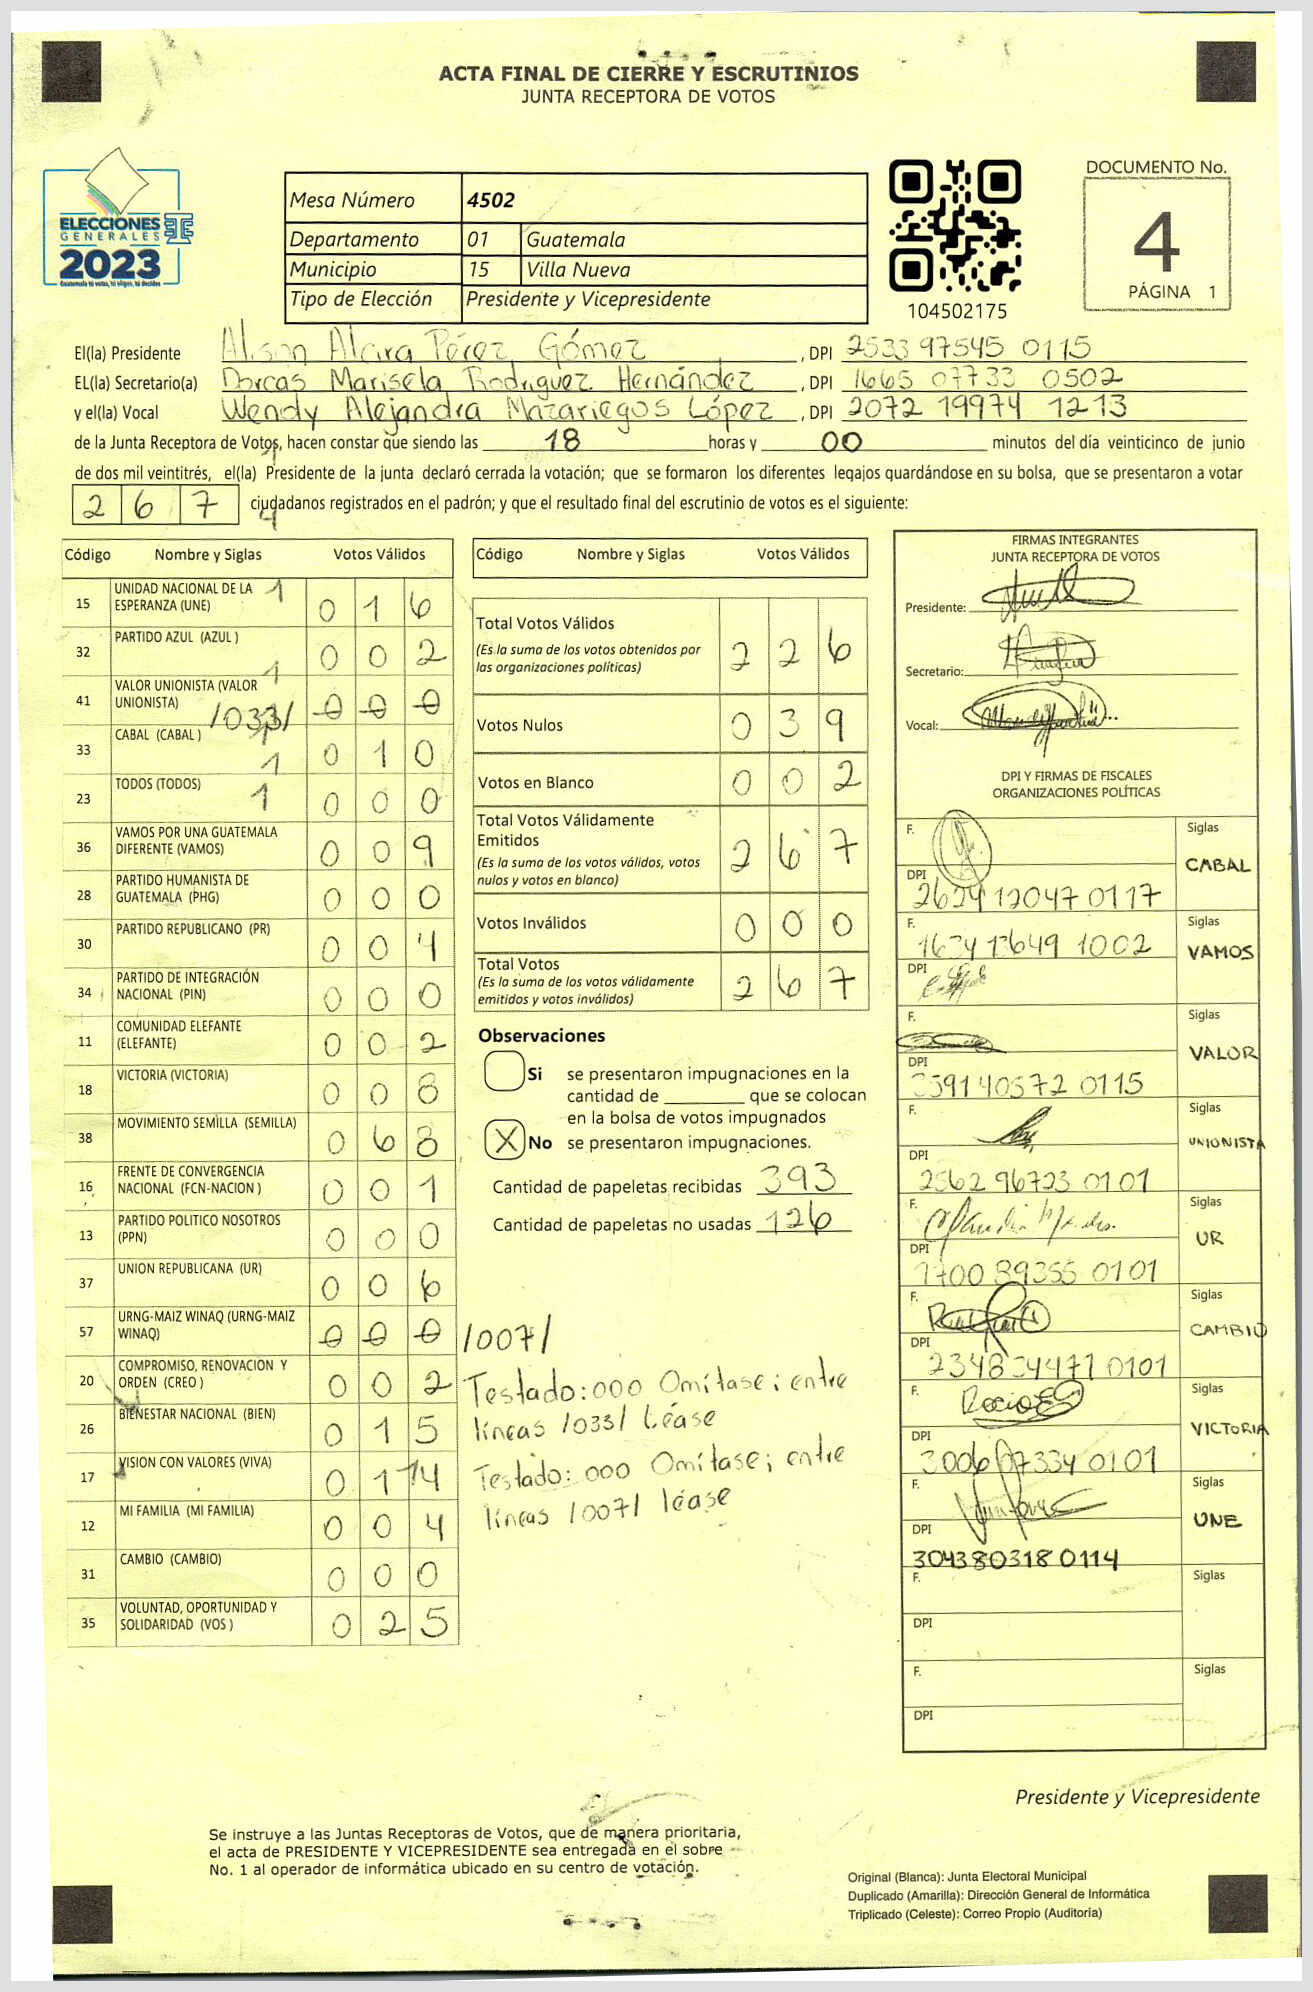 ACTA FINAL DE CIERRE Y ESCRUTINIOS
JUNTA RECEPTORA DE VOTOS
ELECCIONES
GENERALES
2023
Guatemala tú votas, tú eliges, tú decides
Mesa Número 4502
Departamento 01 Guatemala
Municipio 15 Villa Nueva
Tipo de Elección Presidente y Vicepresidente
104502175
DOCUMENTO No.
4
PÁGINA 1
El(la) Presidente Alison Alcira Pérez Gómez , DPI 2533 97545 0115
EL(la) Secretario(a) Dorcas Marisela Rodriguez Hernández , DPI 1665 07733 0502
y el(la) Vocal Wendy Alejandra Mazariegos López , DPI 2072 19974 1213
de la Junta Receptora de Votos, hacen constar que siendo las 18 horas y 00 minutos del día veinticinco de junio
de dos mil veintitrés, el(la) Presidente de la junta declaró cerrada la votación; que se formaron los diferentes legajos quardándose en su bolsa, que se presentaron a votar
2 6 7 ciudadanos registrados en el padrón; y que el resultado final del escrutinio de votos es el siguiente:
Código Nombre y Siglas Votos Válidos
15 UNIDAD NACIONAL DE LA ESPERANZA (UNE) 0 1 6
32 PARTIDO AZUL (AZUL ) 0 0 2
41 VALOR UNIONISTA (VALOR UNIONISTA) /033/ 0 0 0
33 CABAL (CABAL ) 0 1 0
23 TODOS (TODOS) 0 0 0
36 VAMOS POR UNA GUATEMALA DIFERENTE (VAMOS) 0 0 9
28 PARTIDO HUMANISTA DE GUATEMALA (PHG) 0 0 0
30 PARTIDO REPUBLICANO (PR) 0 0 4
34 PARTIDO DE INTEGRACIÓN NACIONAL (PIN) 0 0 0
11 COMUNIDAD ELEFANTE (ELEFANTE) 0 0 2
18 VICTORIA (VICTORIA) 0 0 8
38 MOVIMIENTO SEMILLA (SEMILLA) 0 6 8
16 FRENTE DE CONVERGENCIA NACIONAL (FCN-NACION ) 0 0 1
13 PARTIDO POLITICO NOSOTROS (PPN) 0 0 0
37 UNION REPUBLICANA (UR) 0 0 6
57 URNG-MAIZ WINAQ (URNG-MAIZ WINAQ) 0 0 0 /007/
20 COMPROMISO, RENOVACION Y ORDEN (CREO ) 0 0 2
26 BIENESTAR NACIONAL (BIEN) 0 1 5
17 VISION CON VALORES (VIVA) 0 1 4
12 MI FAMILIA (MI FAMILIA) 0 0 4
31 CAMBIO (CAMBIO) 0 0 0
35 VOLUNTAD, OPORTUNIDAD Y SOLIDARIDAD (VOS ) 0 2 5
Código Nombre y Siglas Votos Válidos
Total Votos Válidos 2 2 6
(Es la suma de los votos obtenidos por
las organizaciones políticas)
Votos Nulos 0 3 9
Votos en Blanco 0 0 2
Total Votos Válidamente
Emitidos 2 6 7
(Es la suma de los votos válidos, votos
nulos y votos en blanco)
Votos Inválidos 0 0 0
Total Votos 2 6 7
(Es la suma de los votos válidamente
emitidos y votos inválidos)
Observaciones
Si se presentaron impugnaciones en la
cantidad de ________ que se colocan
en la bolsa de votos impugnados
X No se presentaron impugnaciones.
Cantidad de papeletas recibidas 393
Cantidad de papeletas no usadas 126
Testado: 000 Omítase; entre
líneas /033/ Léase
Testado: 000 Omítase; entre
líneas /007/ léase
FIRMAS INTEGRANTES
JUNTA RECEPTORA DE VOTOS
Presidente:
Secretario:
Vocal:
DPI Y FIRMAS DE FISCALES
ORGANIZACIONES POLÍTICAS
F. Siglas
CABAL
DPI
12047 0117
F. Siglas
13649 1002 VAMOS
DPI
F. Siglas
VALOR
DPI
40572 0115
F. Siglas
UNIONISTA
DPI
2562 96723 0101
F. Siglas
UR
DPI
1700 89355 0101
F. Siglas
CAMBIO
DPI
2348 34471 0101
F. Siglas
VICTORIA
DPI
3006 07334 0101
F. Siglas
UNE
DPI
3043803180114
F. Siglas
DPI
F. Siglas
DPI
Presidente y Vicepresidente
Se instruye a las Juntas Receptoras de Votos, que de manera prioritaria,
el acta de PRESIDENTE Y VICEPRESIDENTE sea entregada en el sobre
No. 1 al operador de informática ubicado en su centro de votación.
Original (Blanca): Junta Electoral Municipal
Duplicado (Amarilla): Dirección General de Informática
Triplicado (Celeste): Correo Propio (Auditoría)